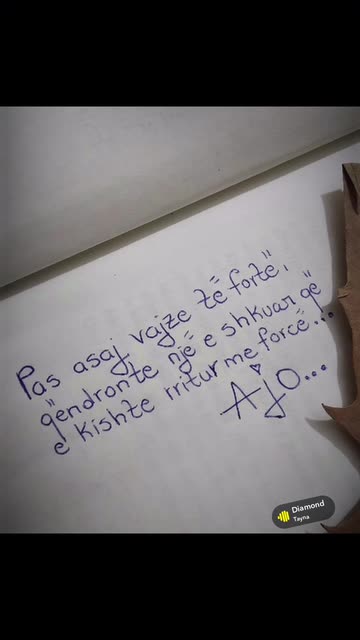 Pas asaj vajze të fortë,
qëndronte një e shkuar që
e kishte rritur me forcë...
Ajo...
Diamond
Tayna